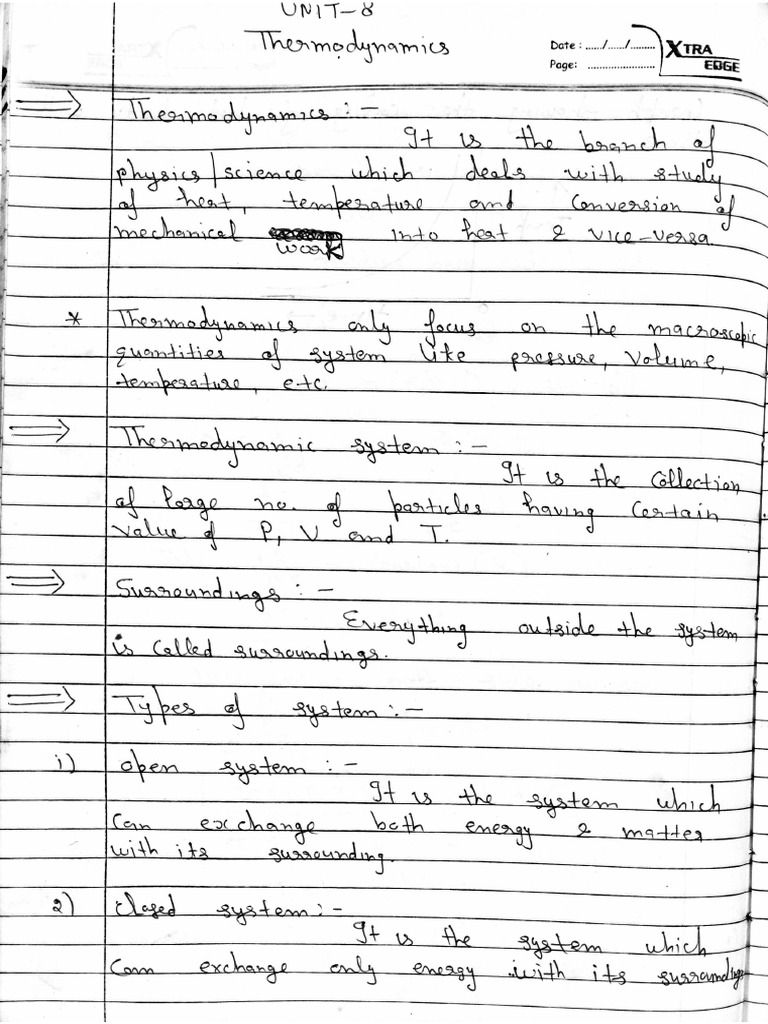 UNIT-8
Thermodynamics
Date : ....../....../.........
Page: ........................
XTRA
EDGE
⇒ Thermodynamics :-
It is the branch of
physics/science which deals with study
of heat, temperature and conversion of
mechanical work into heat & vice-versa.
* Thermodynamics only focus on the macroscopic
quantities of system like pressure, volume,
temperature, etc.
⇒ Thermodynamic system :-
It is the collection
of large no. of particles having certain
value of P, V and T.
⇒ Surroundings :-
Everything outside the system
is called surroundings.
⇒ Types of system :-
i) open system :-
It is the system which
can exchange both energy & matter
with its surrounding.
2) closed system :-
It is the system which
can exchange only energy with its surrounding